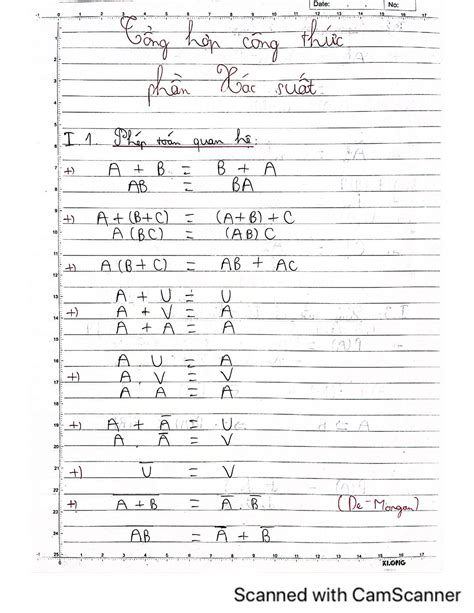 Date: No:
Tổng hợp công thức
phần Xác suất
I 1. Phép toán quan hệ:
+) A + B = B + A
AB = BA
+) A + (B+C) = (A+B) + C
A (BC) = (AB) C
+) A (B+C) = AB + AC
A + U = U
+) A + V = A
A + A = A
A . U = A
+) A . V = V
A A = A
+) A + A̅ = U
A . A̅ = V
+) U̅ = V
+) A̅+̅B̅ = A̅ . B̅ (De-Morgan)
A̅B̅ = A̅ + B̅
KLONG
Scanned with CamScanner